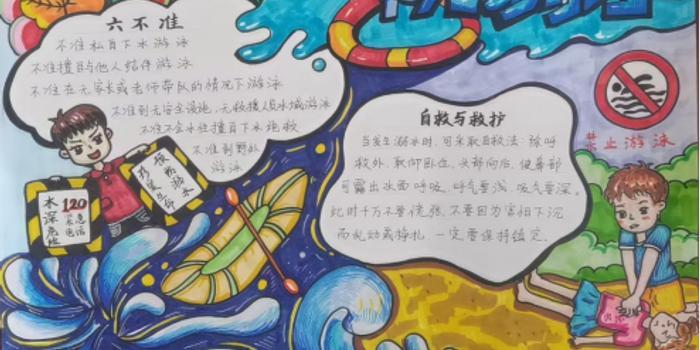 六不准
不准私自下水游泳
不准擅自与他人结伴游泳
不准在无家长或老师带队的情况下游泳
不准到无安全设施、无救援人员水域游泳
不准不会水性擅自下水施救
不准到野外
游泳
水深危险
120
急
电话
珍爱生命
预防溺水
自救与救护
当发生溺水时,可采取自救法:除呼
救外,取仰卧位,头部向后,使鼻部
可露出水面呼吸。呼气要浅,吸气要深。
此时千万不要慌张,不要因为害怕下沉
而乱动或挣扎,一定要保持镇定。
禁止游泳